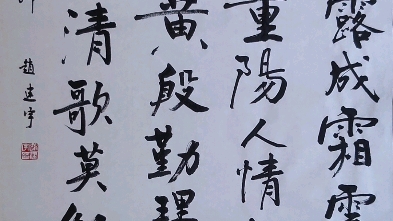 露成霜雲
重陽人情
黃殷勤理
清歌莫
趙建宇